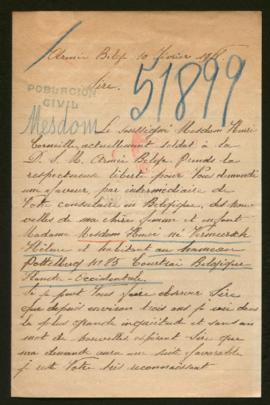 Armée Belge 10 février 191
51899
Sire,
POBLACION
CIVIL
Mesdom
Le soussigné Mesdom Henri
Corneille, actuellement soldat à la
D. S. M. Armée Belge Prends la
respectueuse liberté pour Vous demande
une faveur, par intermédiaire de
Votre consulaire en Belgique, des nou-
velles de ma chère femme et enfant
Madame Mesdom Henri né
Hélène et habitant au hameau
Pottelberg N° 85 Courtrai Belgique
Flandre-Occidentale.
Je peut Vous faire observer Sire
que depuis environ trois ans je vis dans
la plus grande inquiétude et sans un
mot de nouvelles espérant Sire que
ma demande aura une suite favorable
je suis Votre très reconnaissant